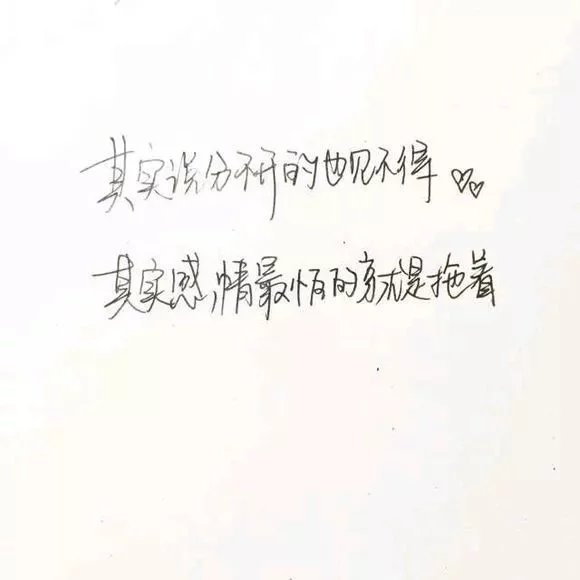 其实说分不开的也见不得
其实感情最怕的就是拖着